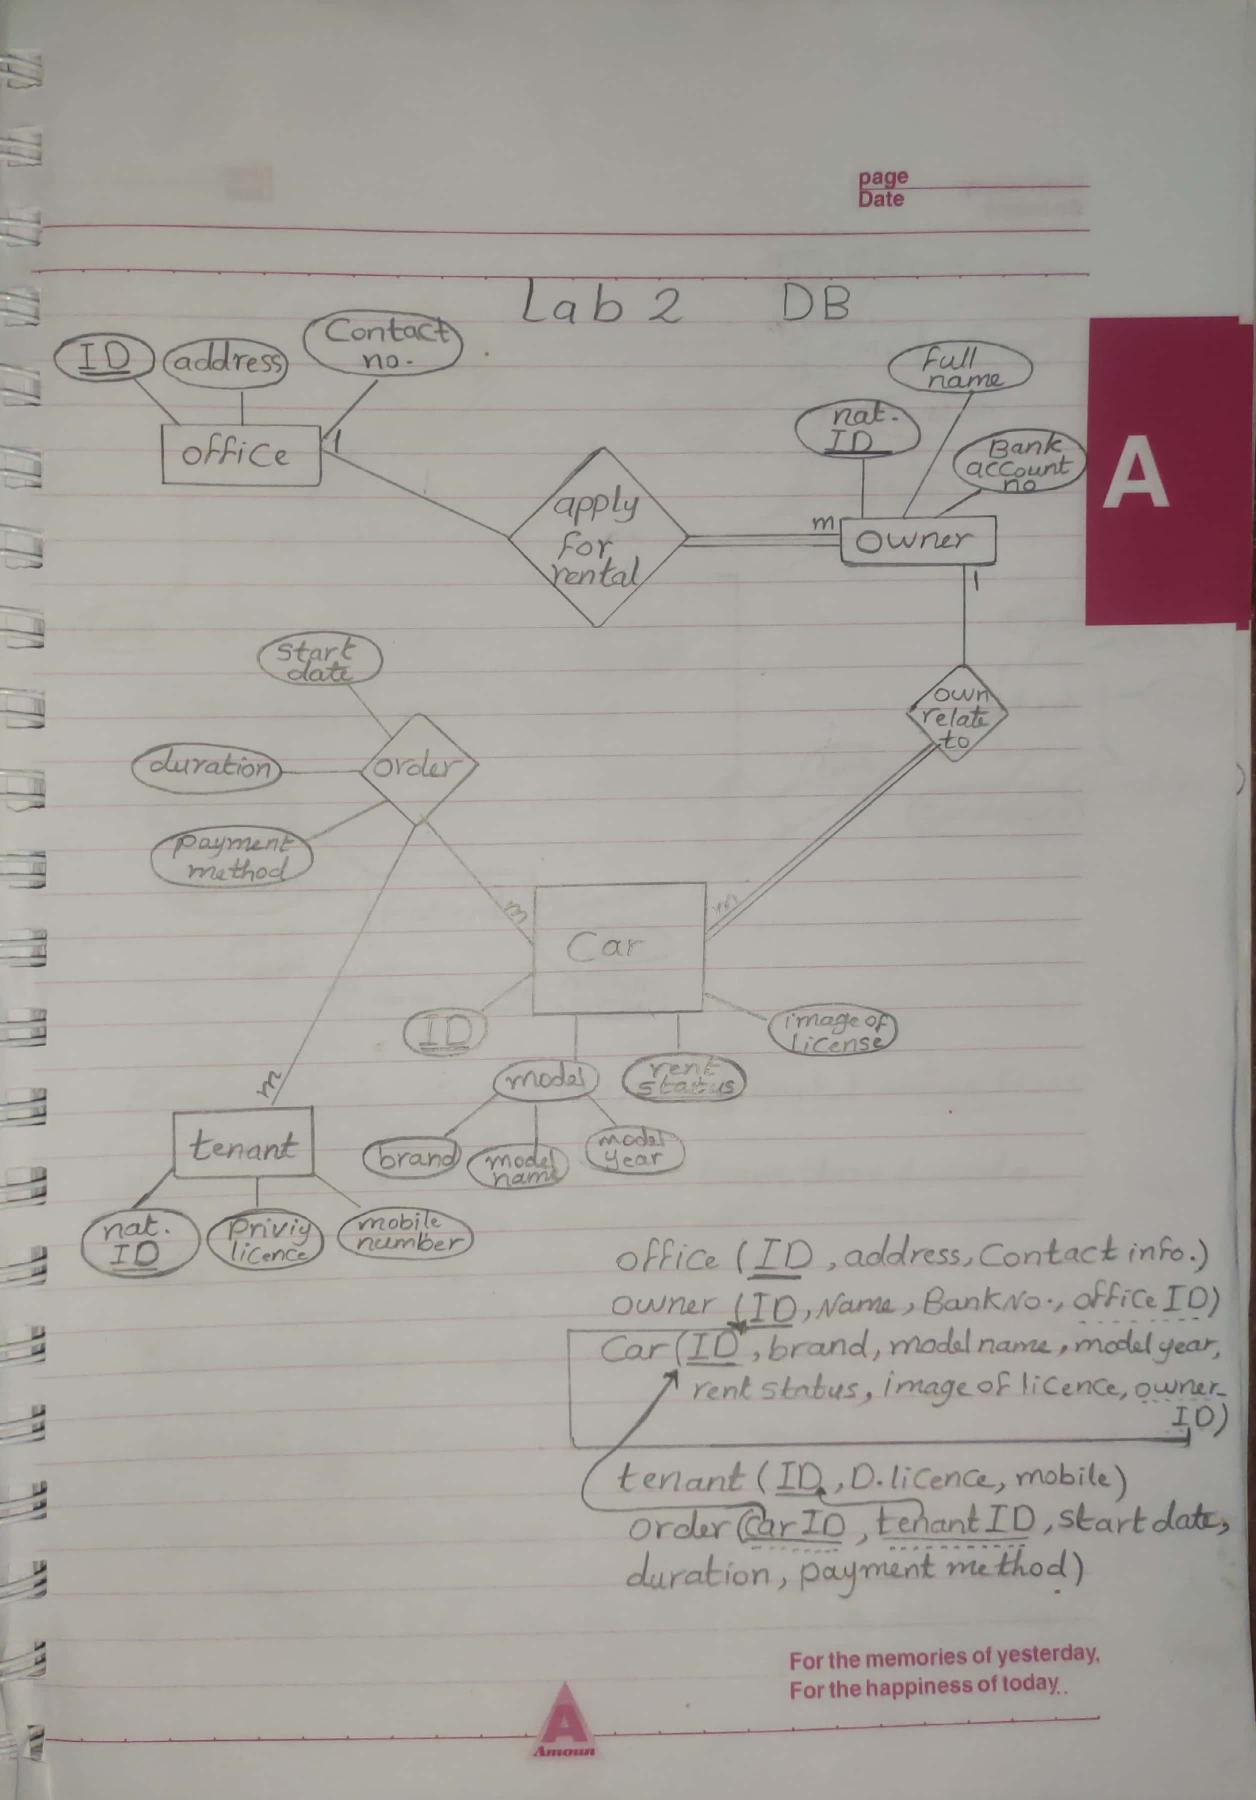 page
Date
Lab 2 DB
ID
address
Contact
no.
office
1
apply
for
rental
m
full
name
nat.
ID
Bank
account
no
owner
1
own
relate
to
start
date
duration
order
payment
method
m
m
Car
ID
model
rent
status
image of
license
brand
model
name
model
year
m
tenant
nat.
ID
Priviy
licence
mobile
number
office (ID, address, Contact info.)
owner (ID, Name, Bank No., office ID)
Car (ID, brand, model name, model year,
rent status, image of licence, owner-
ID)
tenant (ID, D.licence, mobile)
order (Car ID, tenant ID, start date,
duration, payment method)
For the memories of yesterday,
For the happiness of today..
A
A
Amoun